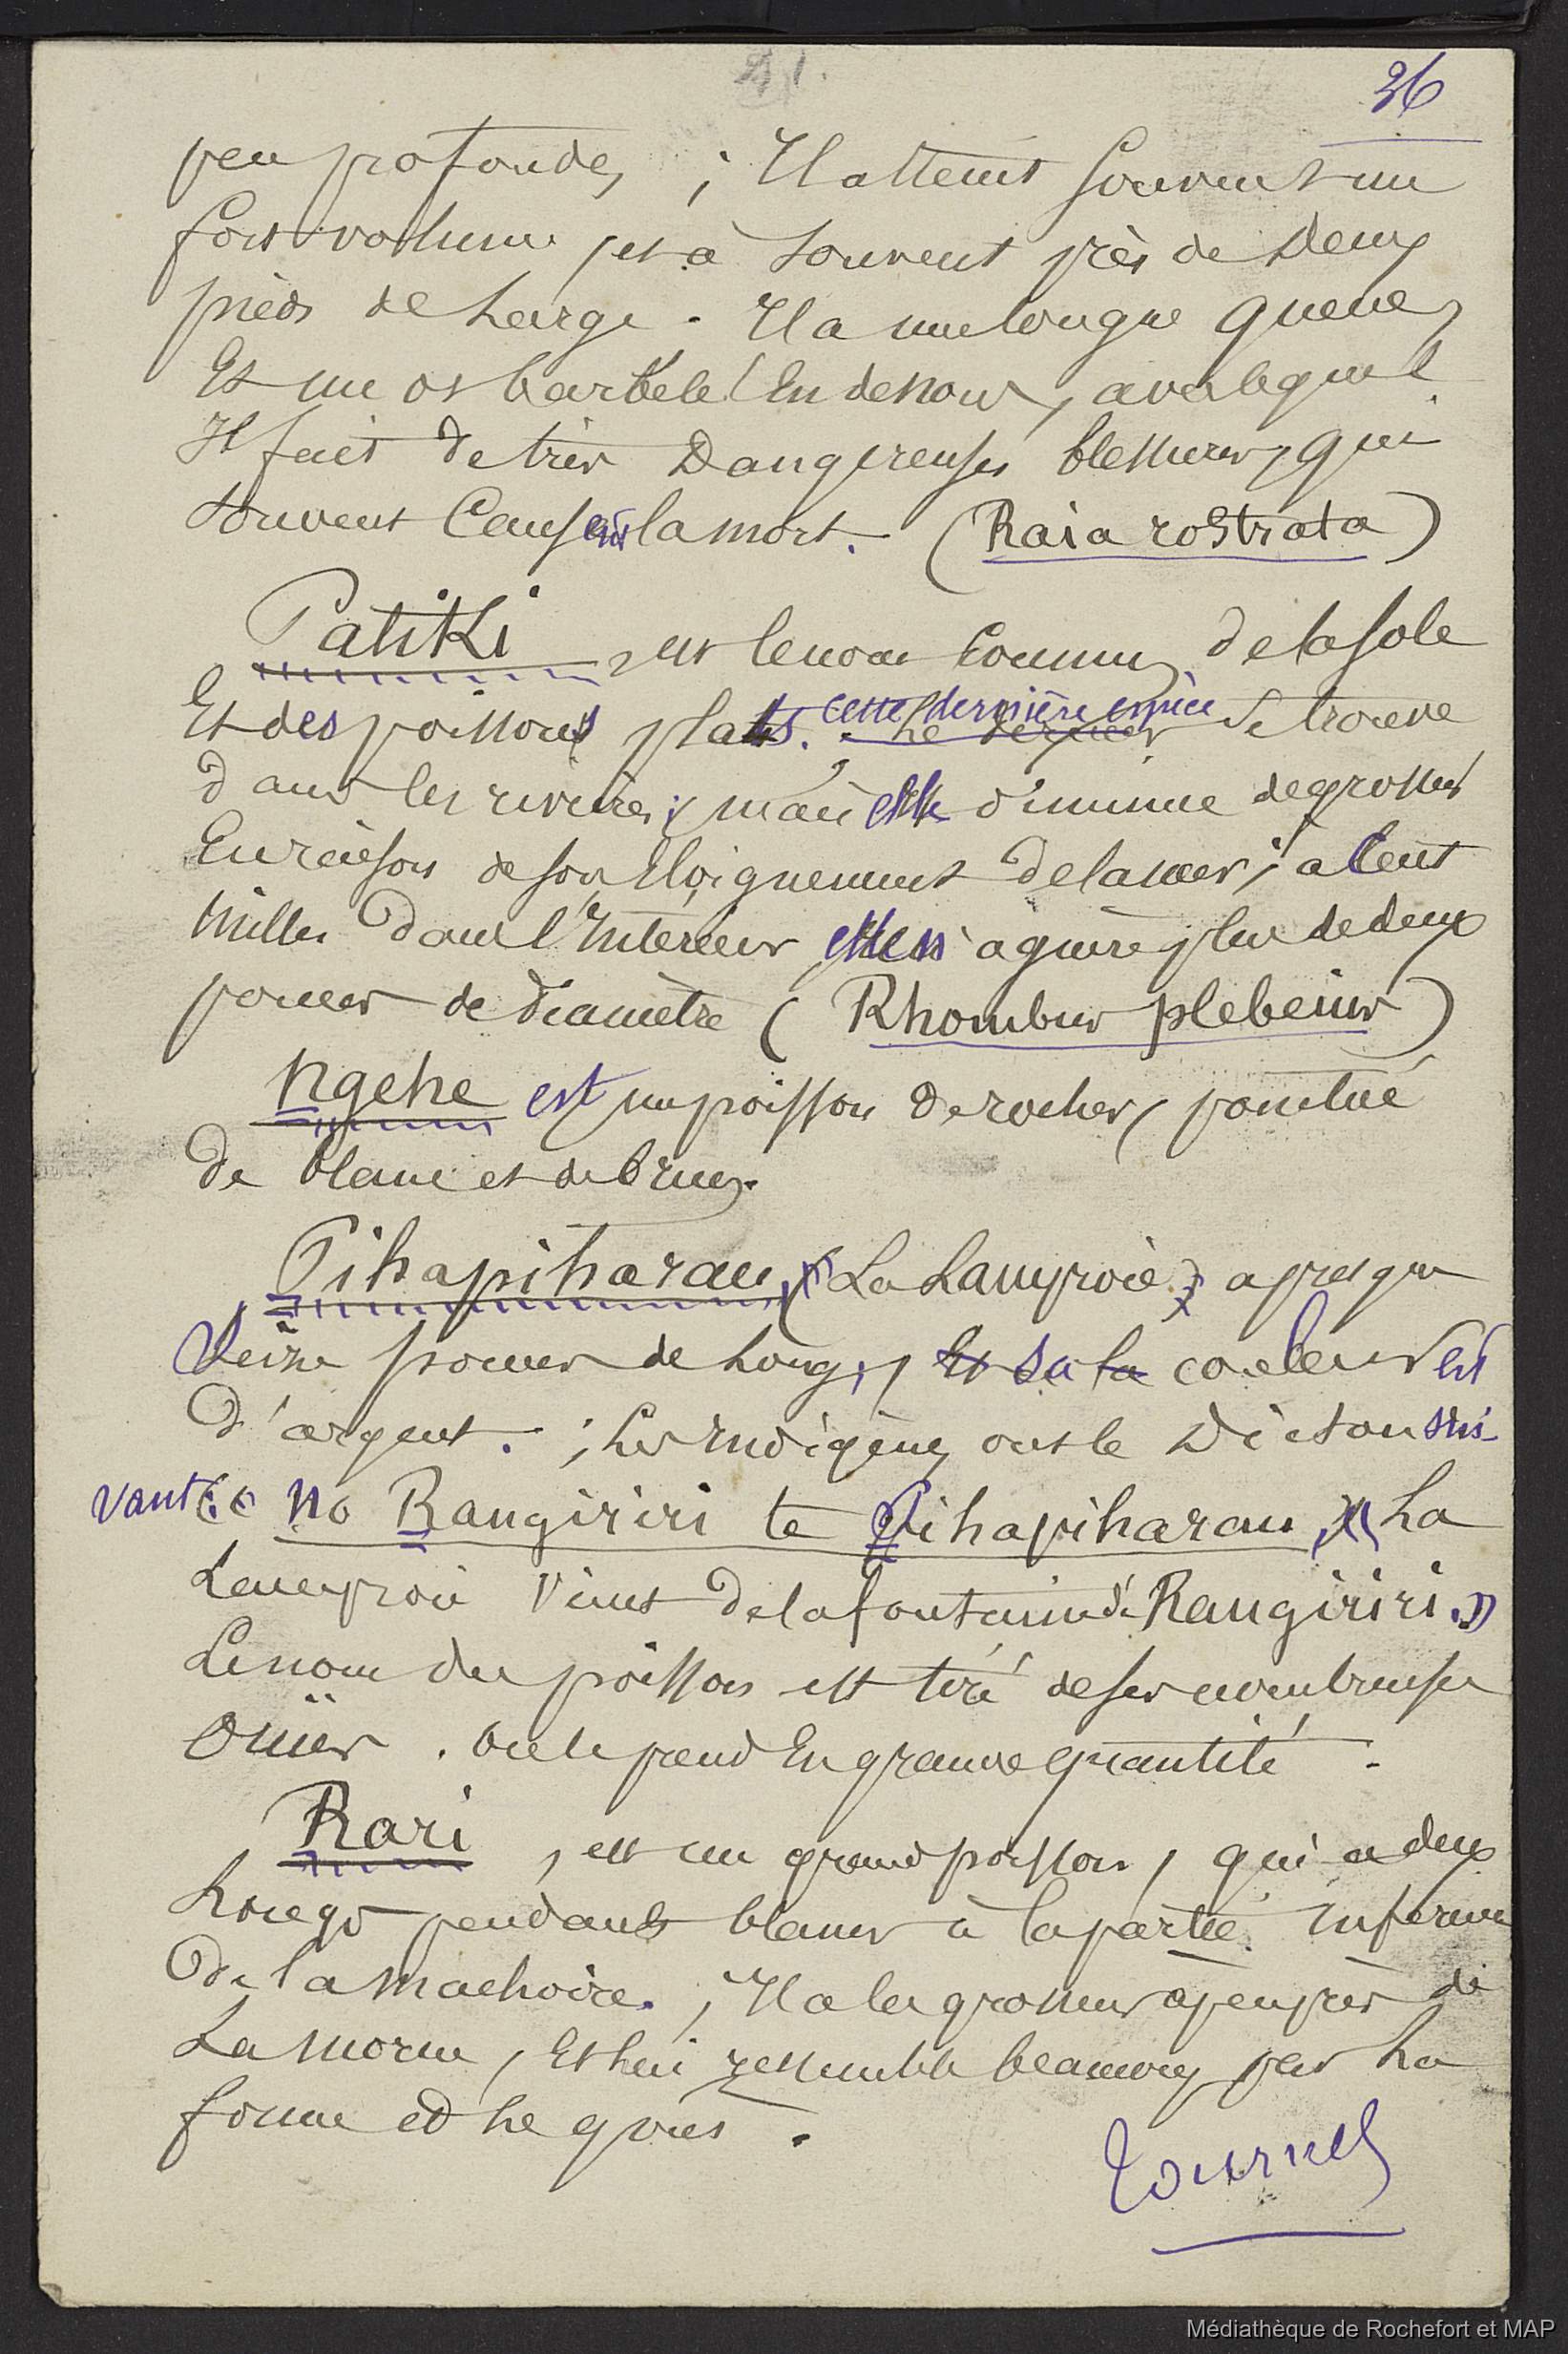 36
peu profondes ; Il atteint souvent un
fort volume, et a souvent près de Deux
pieds de Large. Il a une longue queue,
Et un os barbelé En dessous, avec lequel
Il fait de très Dangereuses blessures, qui
souvent Causent la mort. (Raia rostrata)
Patiki, est le nom Commun de la sole
Et des poissons plats. cette dernière espèce
Le dernier se trouve
dans les rivières ; mais elle diminue de grosseur
En raison de son Eloignement de la mer ; a Cent
milles Dans l'Intérieur elle n'a guère plus de deux
pouces de diamètre (Rhombus plebeius)
Ngehe est un poisson de rocher, ponctué
De blanc et de brun.
Pihapiharau, (La Lamproie) a presque
Seize pouces de Long, Et sa la couleur est
D'argent. ; Les Indigènes ont le Dicton sui-
vant : « no Rangiriri te Pihapiharau, (La
Lamproie vient de la fontaine de Rangiriri.»
Le nom du poisson est tiré de ses nombreuses
ouïes. On le prend En grande quantité.
Rari, est un grand poisson, qui a deux
Longs pendants blancs à la partie inférieure
De la machoire. ; Il a la grosseur à peu près de
La morue, Et lui ressemble beaucoup par La
forme et Le goût.
Tournez
Médiathèque de Rochefort et MAP